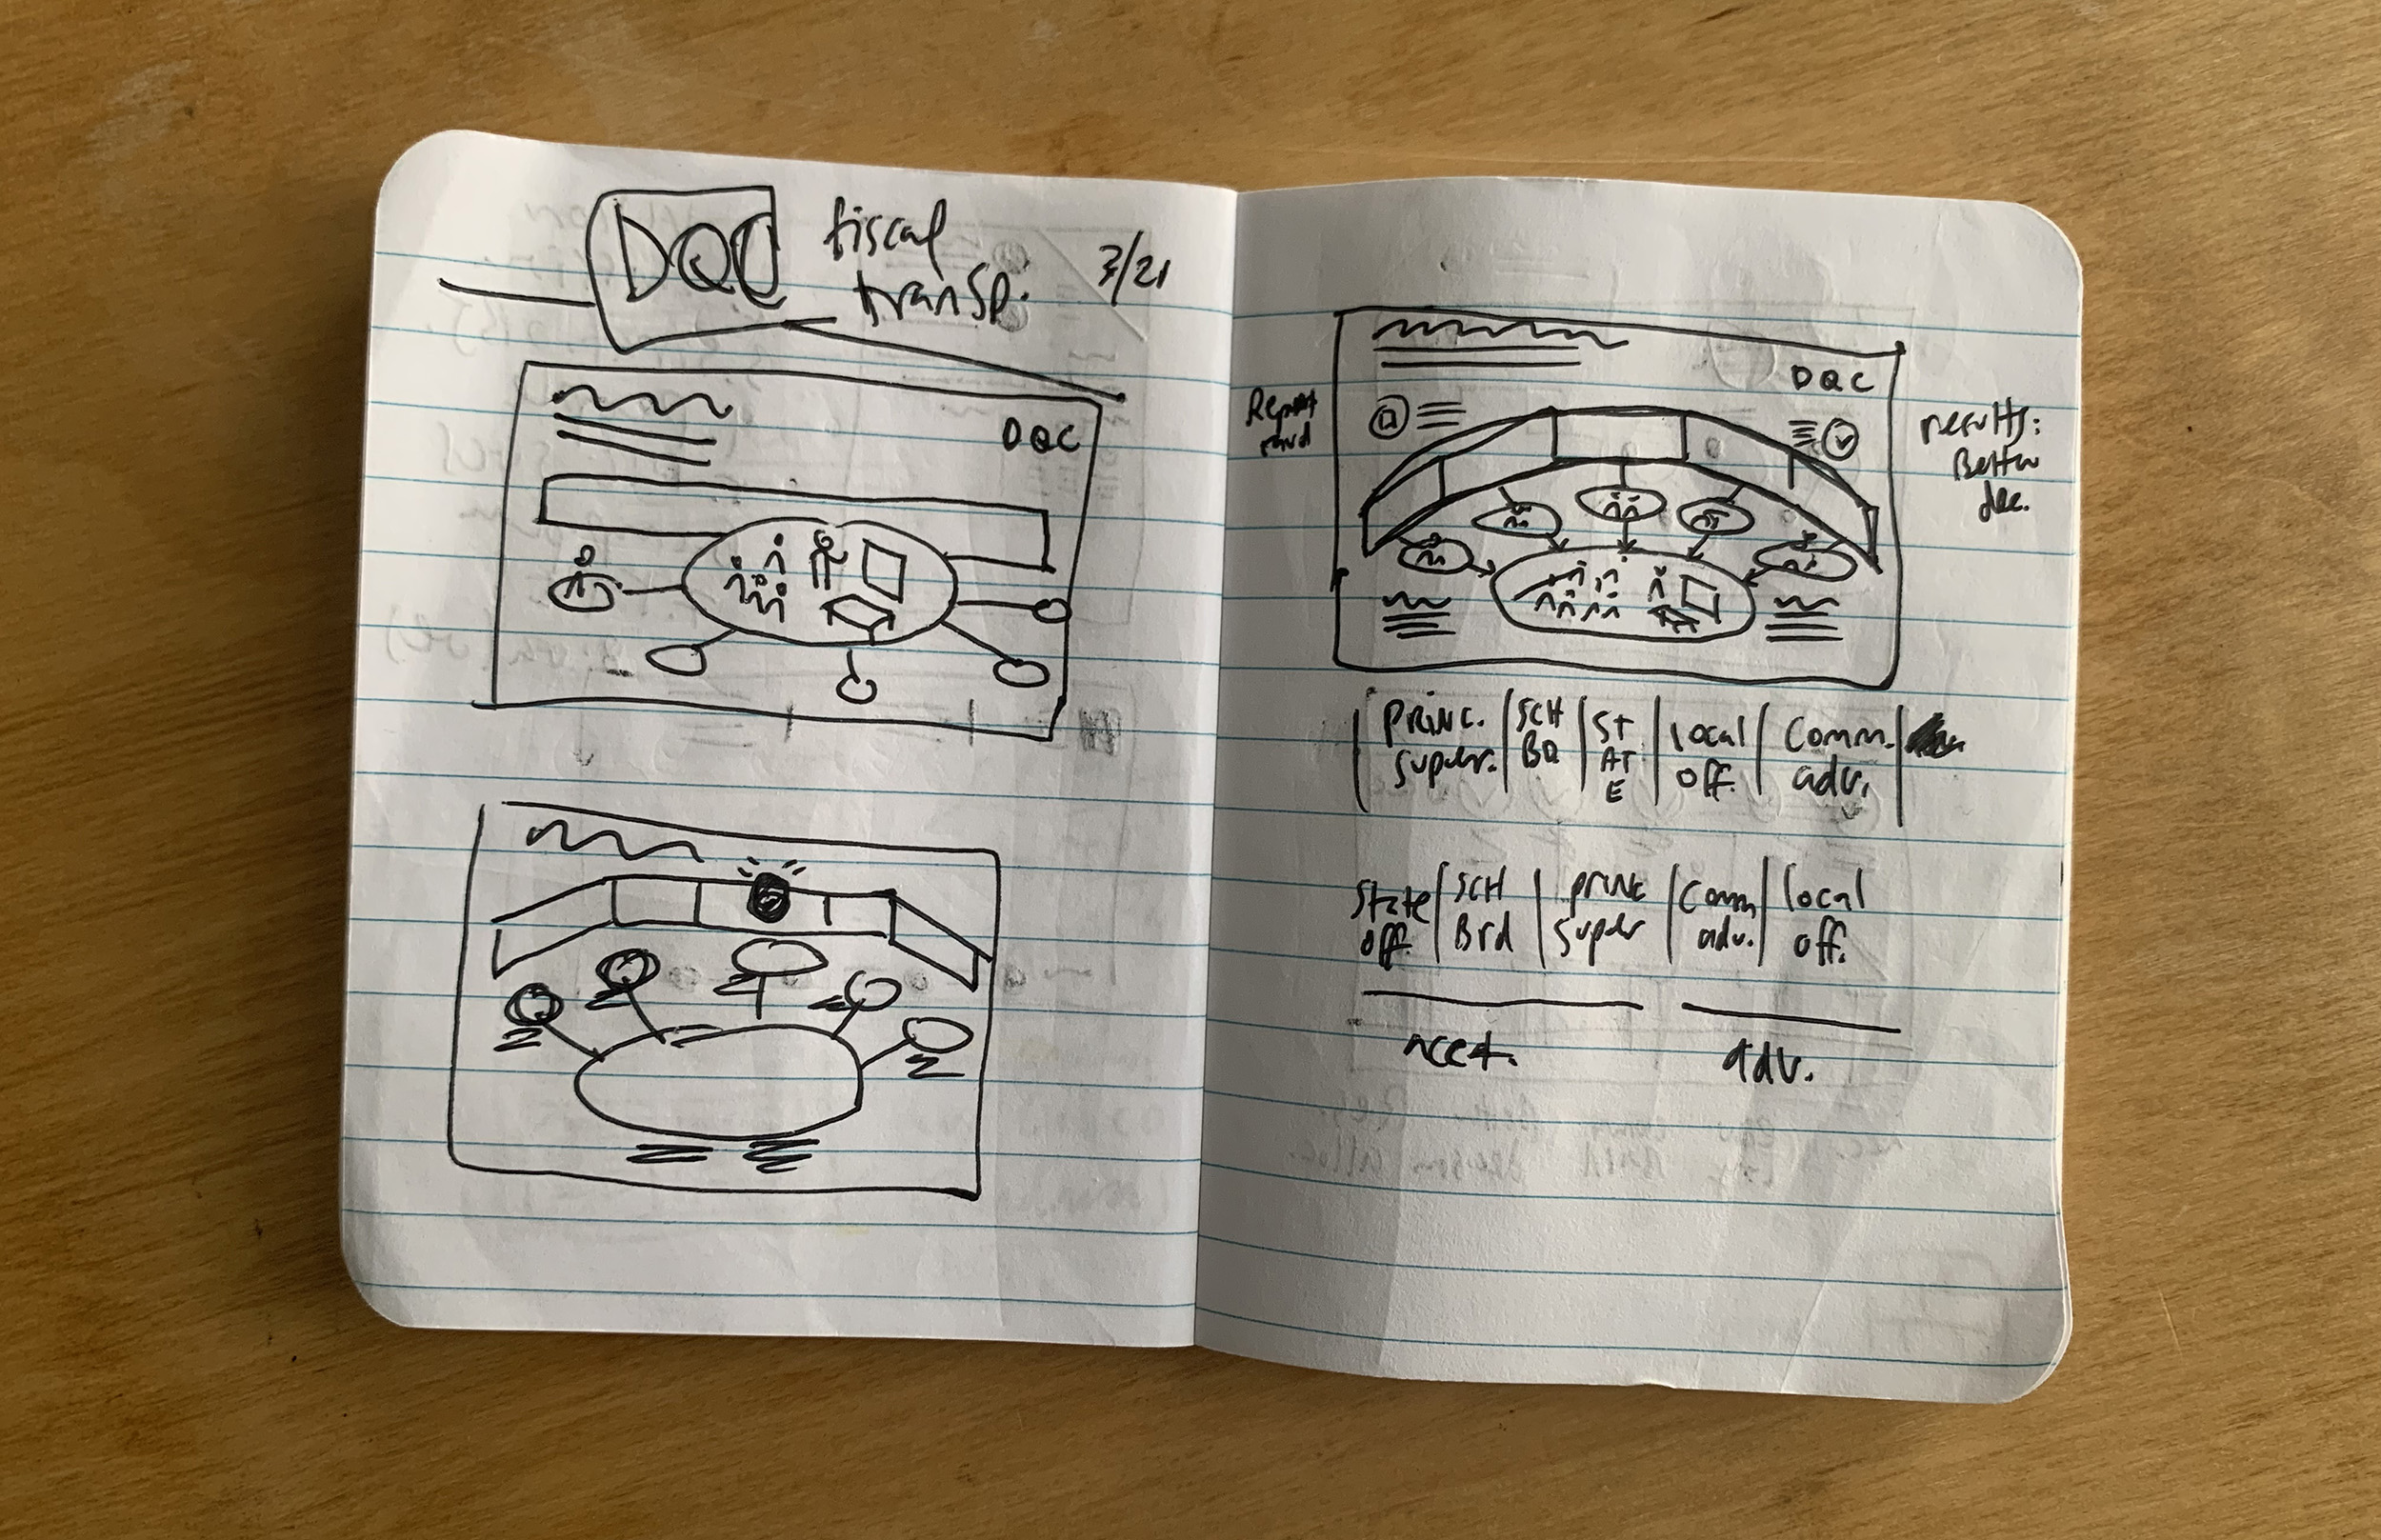 DQC
fiscal
transp.
3/21
DQC
DQC
Report
card
results:
Better
dec.
PRINC.
super.
SCH
BD
ST
AT
E
local
off.
Comm.
adv.
State
off.
SCH
Brd
PRINC
super
Comm
adv.
local
off.
adv.